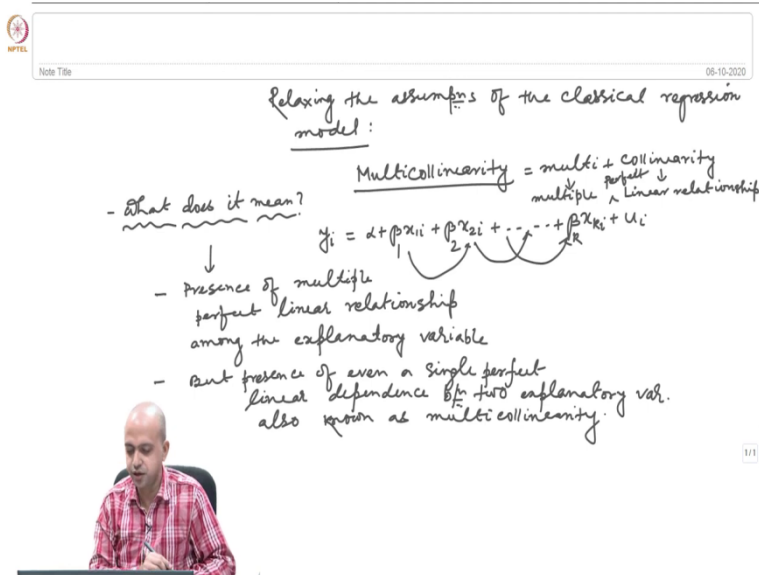 NPTEL
Note Title
06-10-2020
Relaxing the assumpns of the classical regression
model :
Multicollinearity = multi + collinearity
multiple perfect Linear relationship
- What does it mean?
yi = α + β1 x1i + β2 x2i + - - - - - + βk xki + ui
- Presence of multiple
perfect linear relationship
among the explanatory variable
- But presence of even a single perfect
linear dependence b/n two explanatory var.
also known as multicollinearity.
1/1